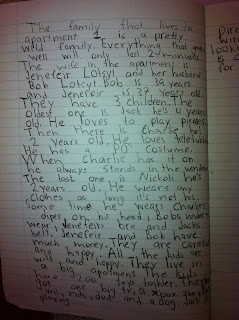 The family that lives in
apartment 1 is a pretty
wild family. Everything that goes
well will only last 2 minuts.
The wife in the apartment is
Jenefeir Lotsyt and her husband
Bob Lotcyt. Bob is 39 years
and Jenefeir is 37 years old.
They have 3 children. The
oldest one is Jack he's 4 years
old. He loves to play pirates.
Then there is Charlie he's
2 years old. He loves teletubbie
He has a po costume.
When Charlie has it on
he always stends in the window
The last one is Nickoli he's
2 years old. He weare any
clothes as long it's not his
some time he wears Charlies
diper, on he head, Bobs under
wear, Jenefeirs bra and Jacks
belt. Jenefeir and Bob have
much money. They are careful
and happy. All the kids are
wild and happy. They live in
a big apartment. The kids
have a 200 toys
got one big tv a xbox 360
wii, and a dog Jack